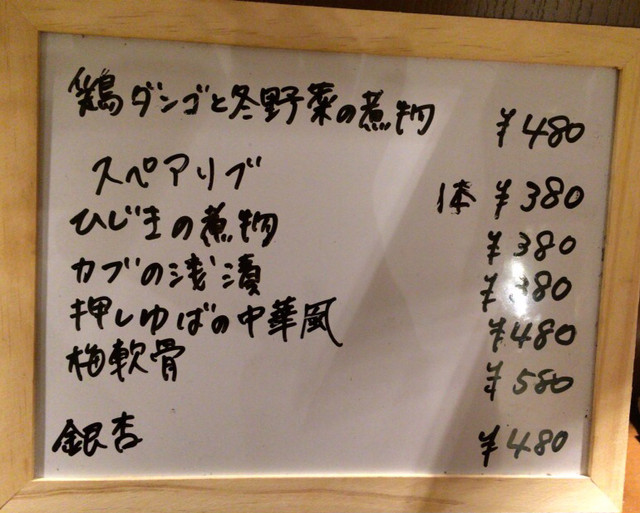 鶏ダンゴと冬野菜の煮物 ¥480
スペアリブ 1本 ¥380
ひじきの煮物 ¥380
カブの浅漬 ¥380
押しゆばの中華風 ¥480
梅軟骨 ¥580
銀杏 ¥480